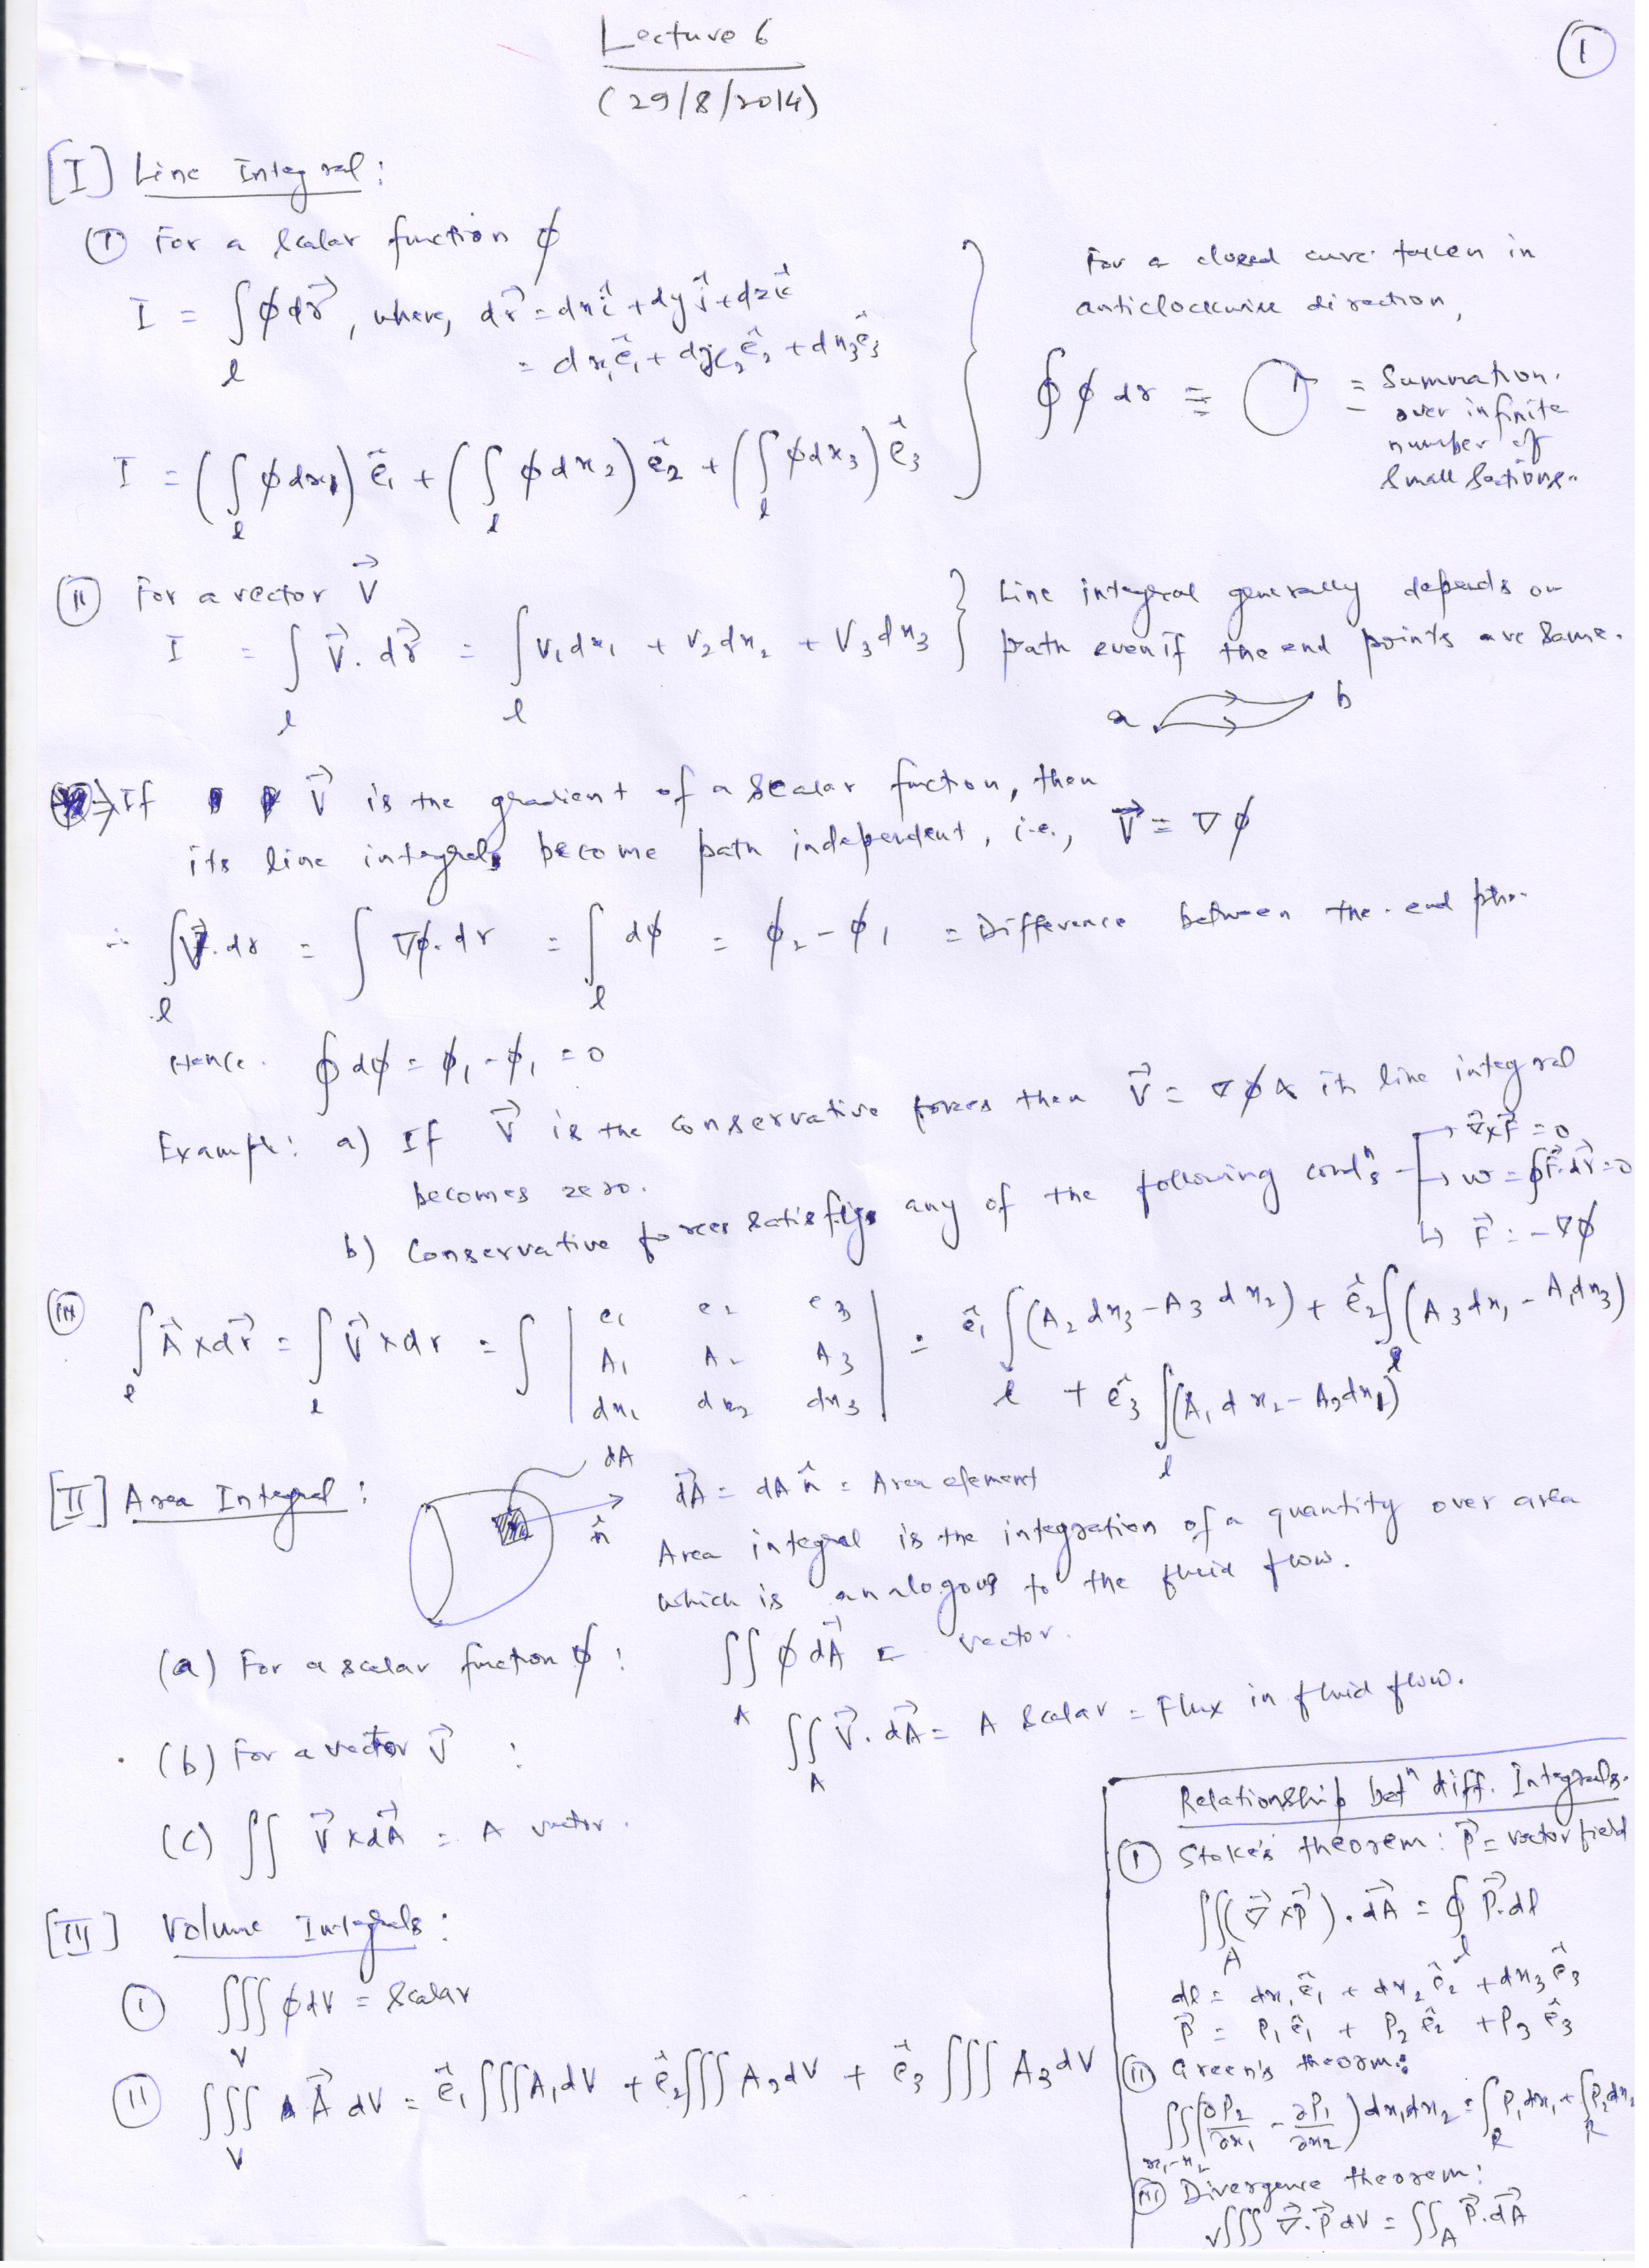 Lecture 6
(29/8/2014)
①
[I] Line Integral:
(I) For a scalar function ϕ
I = ∫_l ϕ dr⃗, where, dr⃗ = dx î + dy ĵ + dz k̂
= dx₁ ê₁ + dx₂ ê₂ + dx₃ ê₃
I = (∫_l ϕ dx₁) ê₁ + (∫_l ϕ dx₂) ê₂ + (∫_l ϕ dx₃) ê₃
For a closed curve taken in
anticlockwise direction,
∮ ϕ dr ≡ = Summation
over infinite
number of
small sections.
(II) For a vector V⃗
I = ∫_l V⃗ . dr⃗ = ∫_l V₁dx₁ + V₂dx₂ + V₃dx₃
Line integral generally depends on
path even if the end points are same.
a b
→ If V⃗ is the gradient of a scalar fuction, then
its line integrals become path independent, i.e., V⃗ = ∇ϕ
∴ ∫_l V⃗.dr = ∫ ∇ϕ.dr = ∫_l dϕ = ϕ₂ - ϕ₁ = Difference between the end pts.
Hence. ∮ dϕ = ϕ₁ - ϕ₁ = 0
Example: a) If V⃗ is the conservative forces then V⃗ = ∇ϕ & its line integral
becomes zero.
b) Conservative forces satisfy any of the following condⁿs
→ ∇⃗×F⃗ = 0
→ W = ∮F⃗.dr⃗ = 0
↳ F⃗ = -∇ϕ
(III) ∫_l A⃗ × dr⃗ = ∫_l V⃗ × dr = ∫ | e₁ e₂ e₃
A₁ A₂ A₃
dx₁ dx₂ dx₃ | = ê₁ ∫_l (A₂ dx₃ - A₃ dx₂) + ê₂ ∫_l (A₃ dx₁ - A₁dx₃)
+ ê₃ ∫_l (A₁ dx₂ - A₂dx₁)
[II] Area Integral:
dA
n̂
dA⃗ = dA n̂ = Area element
Area integral is the integration of a quantity over area
which is analogous to the fluid flow.
(a) For a scalar function ϕ: ∫∫_A ϕ dA⃗ = vector.
(b) For a vector V⃗ : ∫∫_A V⃗ . dA⃗ = A scalar = Flux in fluid flow.
(c) ∫∫ V⃗ × dA⃗ = A vector.
[III] Volume Integrals:
(I) ∫∫∫_V ϕ dV = Scalar
(II) ∫∫∫_V A⃗ dV = ê₁ ∫∫∫ A₁dV + ê₂ ∫∫∫ A₂dV + ê₃ ∫∫∫ A₃dV
Relationship betⁿ diff. Integrals.
(I) Stoke's theorem: P⃗ = vector field
∫∫_A (∇⃗ × P⃗) . dA⃗ = ∮_l P⃗.dl
dl = dx₁ ê₁ + dx₂ ê₂ + dx₃ ê₃
P⃗ = P₁ ê₁ + P₂ ê₂ + P₃ ê₃
(II) Green's theorm:
∫∫_{x₁-x₂} (∂P₂/∂x₁ - ∂P₁/∂x₂) dx₁dx₂ = ∫_R P₁dx₁ + ∫_R P₂dx₂
(III) Divergence theorem:
∫∫∫_V ∇⃗.P⃗ dV = ∫∫_A P⃗.dA⃗